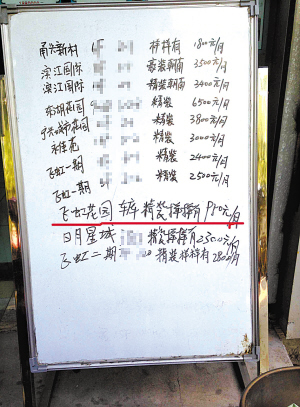 甬兴新村 样样有 1800元/月
滨江国际 豪装朝南 3500元/月
滨江国际 精装朝南 3400元/月
东湖花园 精装 6500元/月
城市花园 精装 3800元/月
精装 3000元/月
飞虹一期 精装 2400元/月
飞虹一期 精装 2500元/月
飞虹花园 车库 精装样样有 950元/月
日月星城 精装样样有 2500元/月
飞虹二期 精装样样有 2800元/月